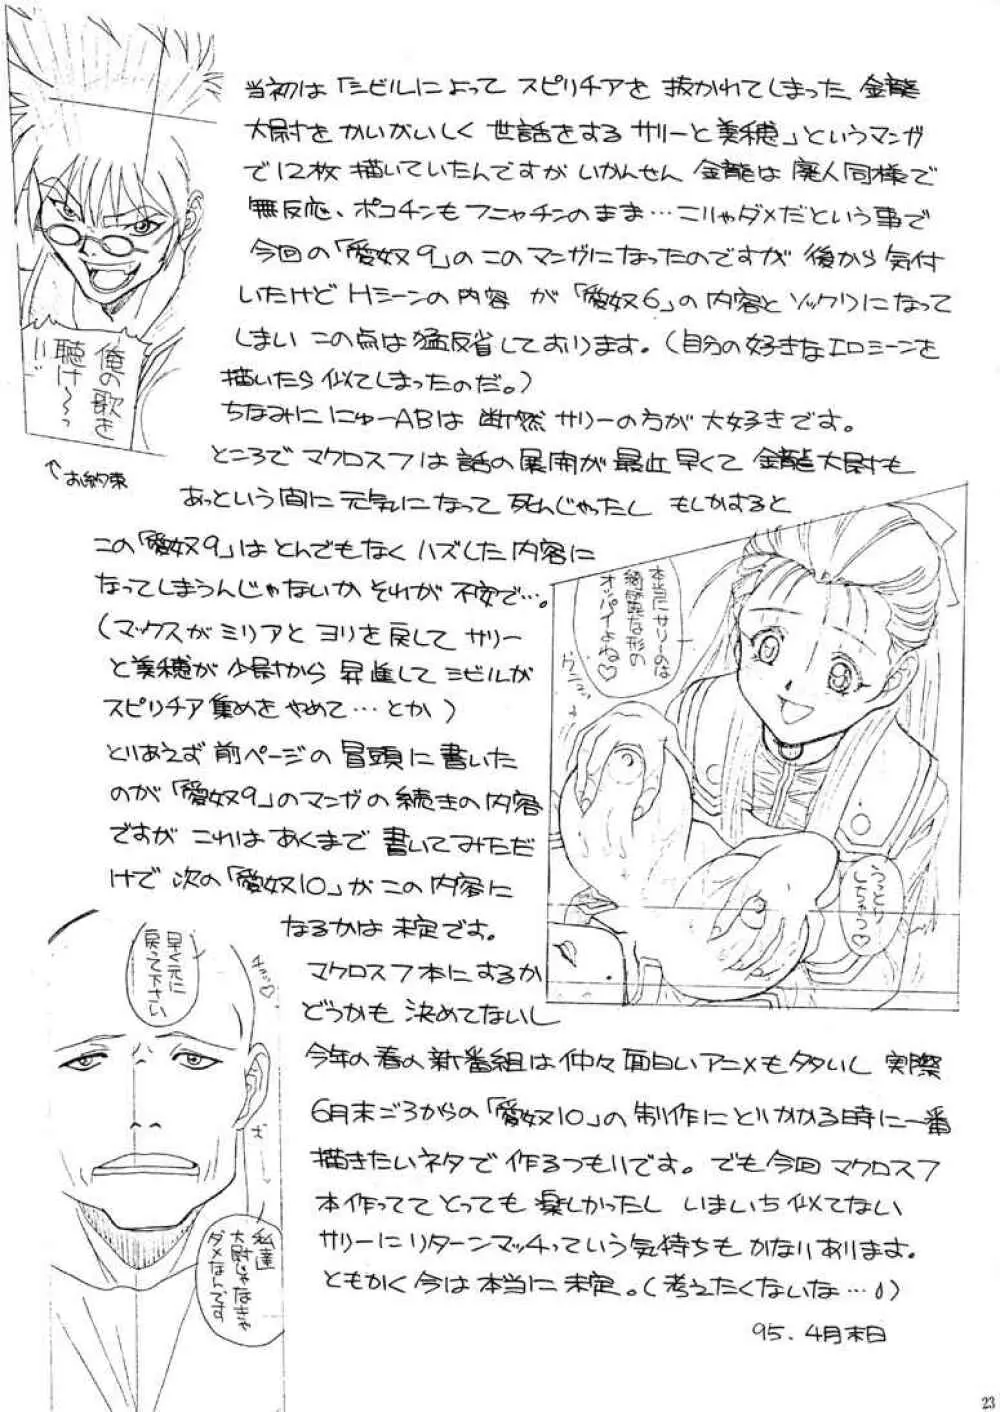 当初は「シビルによって スピリチアを 抜かれてしまった、金龍
大尉を かいがいしく 世話をする サリーと美穂」というマンガ
で12枚 描いていたんですが いかんせん 金龍は 廃人同様で
無反応、ポコチンも フニャチンのまま…こりゃダメだという事で
今回の「愛奴9」の このマンガになったのですが 後から 気付
いたけど Hシーンの内容 が「愛奴6」の内容と ソックリになって
しまい この点は 猛反省しております。(自分の好きなエロシーンを
描いたら 似てしまったのだ。)
ちなみに にゅーABは 断然 サリーの方が 大好きです。
ところで マクロス7は 話の展開が 最近早くて 金龍大尉も
あっという間に 元気になって 死んじゃったし もしかすると
この「愛奴9」は とんでもなく ハズした内容に
なってしまうんじゃないか それが 不安で…。
(マックスが ミリアと ヨリを戻して サリー
と美穂が 少尉から 昇進して シビルが
スピリチア集めを やめて…とか)
とりあえず 前ページの 冒頭に 書いた
のが「愛奴9」のマンガの続きの内容
ですが これは あくまで 書いてみただ
けで 次の「愛奴10」が この内容に
なるかは 未定です。
マクロス7本にするか
どうかも 決めてないし
今年の春の新番組は 仲々 面白いアニメも多いし 実際
6月末ごろからの「愛奴10」の 制作にとりかかる時に一番
描きたいネタで 作るつもりです。でも今回 マクロス7
本作ってて とっても 楽しかったし いまいち 似てない
サリーに リターンマッチっていう気持ちも かなりあります。
ともかく 今は 本当に 未定。(考えたくないな…)
95. 4月末日
俺の歌を
聴け〜〜っ
↑お約束
本当にサリーのは
綺麗な形の
オッパイよね♡
うっとり
しちゃう♡
早く元に
戻って下さい
私達
大尉じゃなきゃ
ダメなんです
23